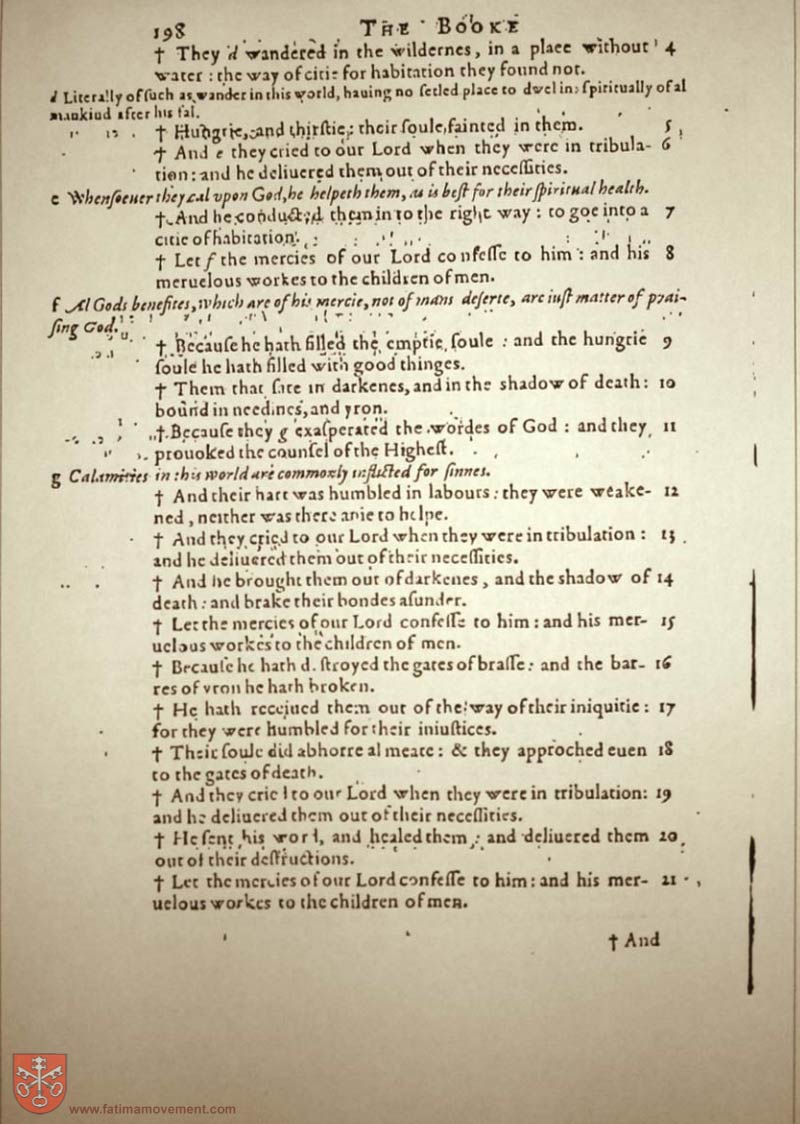 198 THE BOOKE
† They d wandered in the wildernes, in a place without 4
water : the way of citie for habitation they found not.
d Literally of such as wander in this world, hauing no setled place to dwel in: spiritually of al
mankind after his fal.
† Hungrie, and thirstie: their soule fainted in them. 5
† And e they cried to our Lord when they were in tribula- 6
tion : and he deliuered them out of their necessities.
e Whensoeuer they cal vpon God, he helpeth them, as is best for their spiritual health.
† And he conducted them into the right way : to goe into a 7
citie of habitation.
† Let f the mercies of our Lord confesse to him : and his 8
meruelous workes to the children of men.
f Al Gods benefites, which are of his mercie, not of mans deserte, are iust matter of prai-
sing God.
† Because he hath filled the emptie soule : and the hungrie 9
soule he hath filled with good thinges.
† Them that sitte in darkenes, and in the shadow of death : 10
bound in needines, and yron.
† Because they g exasperated the wordes of God : and they 11
prouoked the counsel of the Highest.
g Calamities in this world are commonly inflicted for sinnes.
† And their hart was humbled in labours : they were weake- 12
ned , neither was there anie to helpe.
† And they cried to our Lord when they were in tribulation : 13
and he deliuered them out of their necessities.
† And he brought them out of darkenes , and the shadow of 14
death : and brake their bondes asunder.
† Let the mercies of our Lord confesse to him : and his mer- 15
uelous workes to the children of men.
† Because he hath destroyed the gates of brasse : and the bar- 16
res of yron he hath broken.
† He hath receiued them out of the way of their iniquitie : 17
for they were humbled for their iniustices.
† Their soule did abhorre al meate : & they approched euen 18
to the gates of death.
† And they cried to our Lord when they were in tribulation : 19
and he deliuered them out of their necessities.
† He sent his word, and healed them : and deliuered them 20
out of their destructions.
† Let the mercies of our Lord confesse to him : and his mer- 21
uelous workes to the children of men.
† And
www.fatimamovement.com